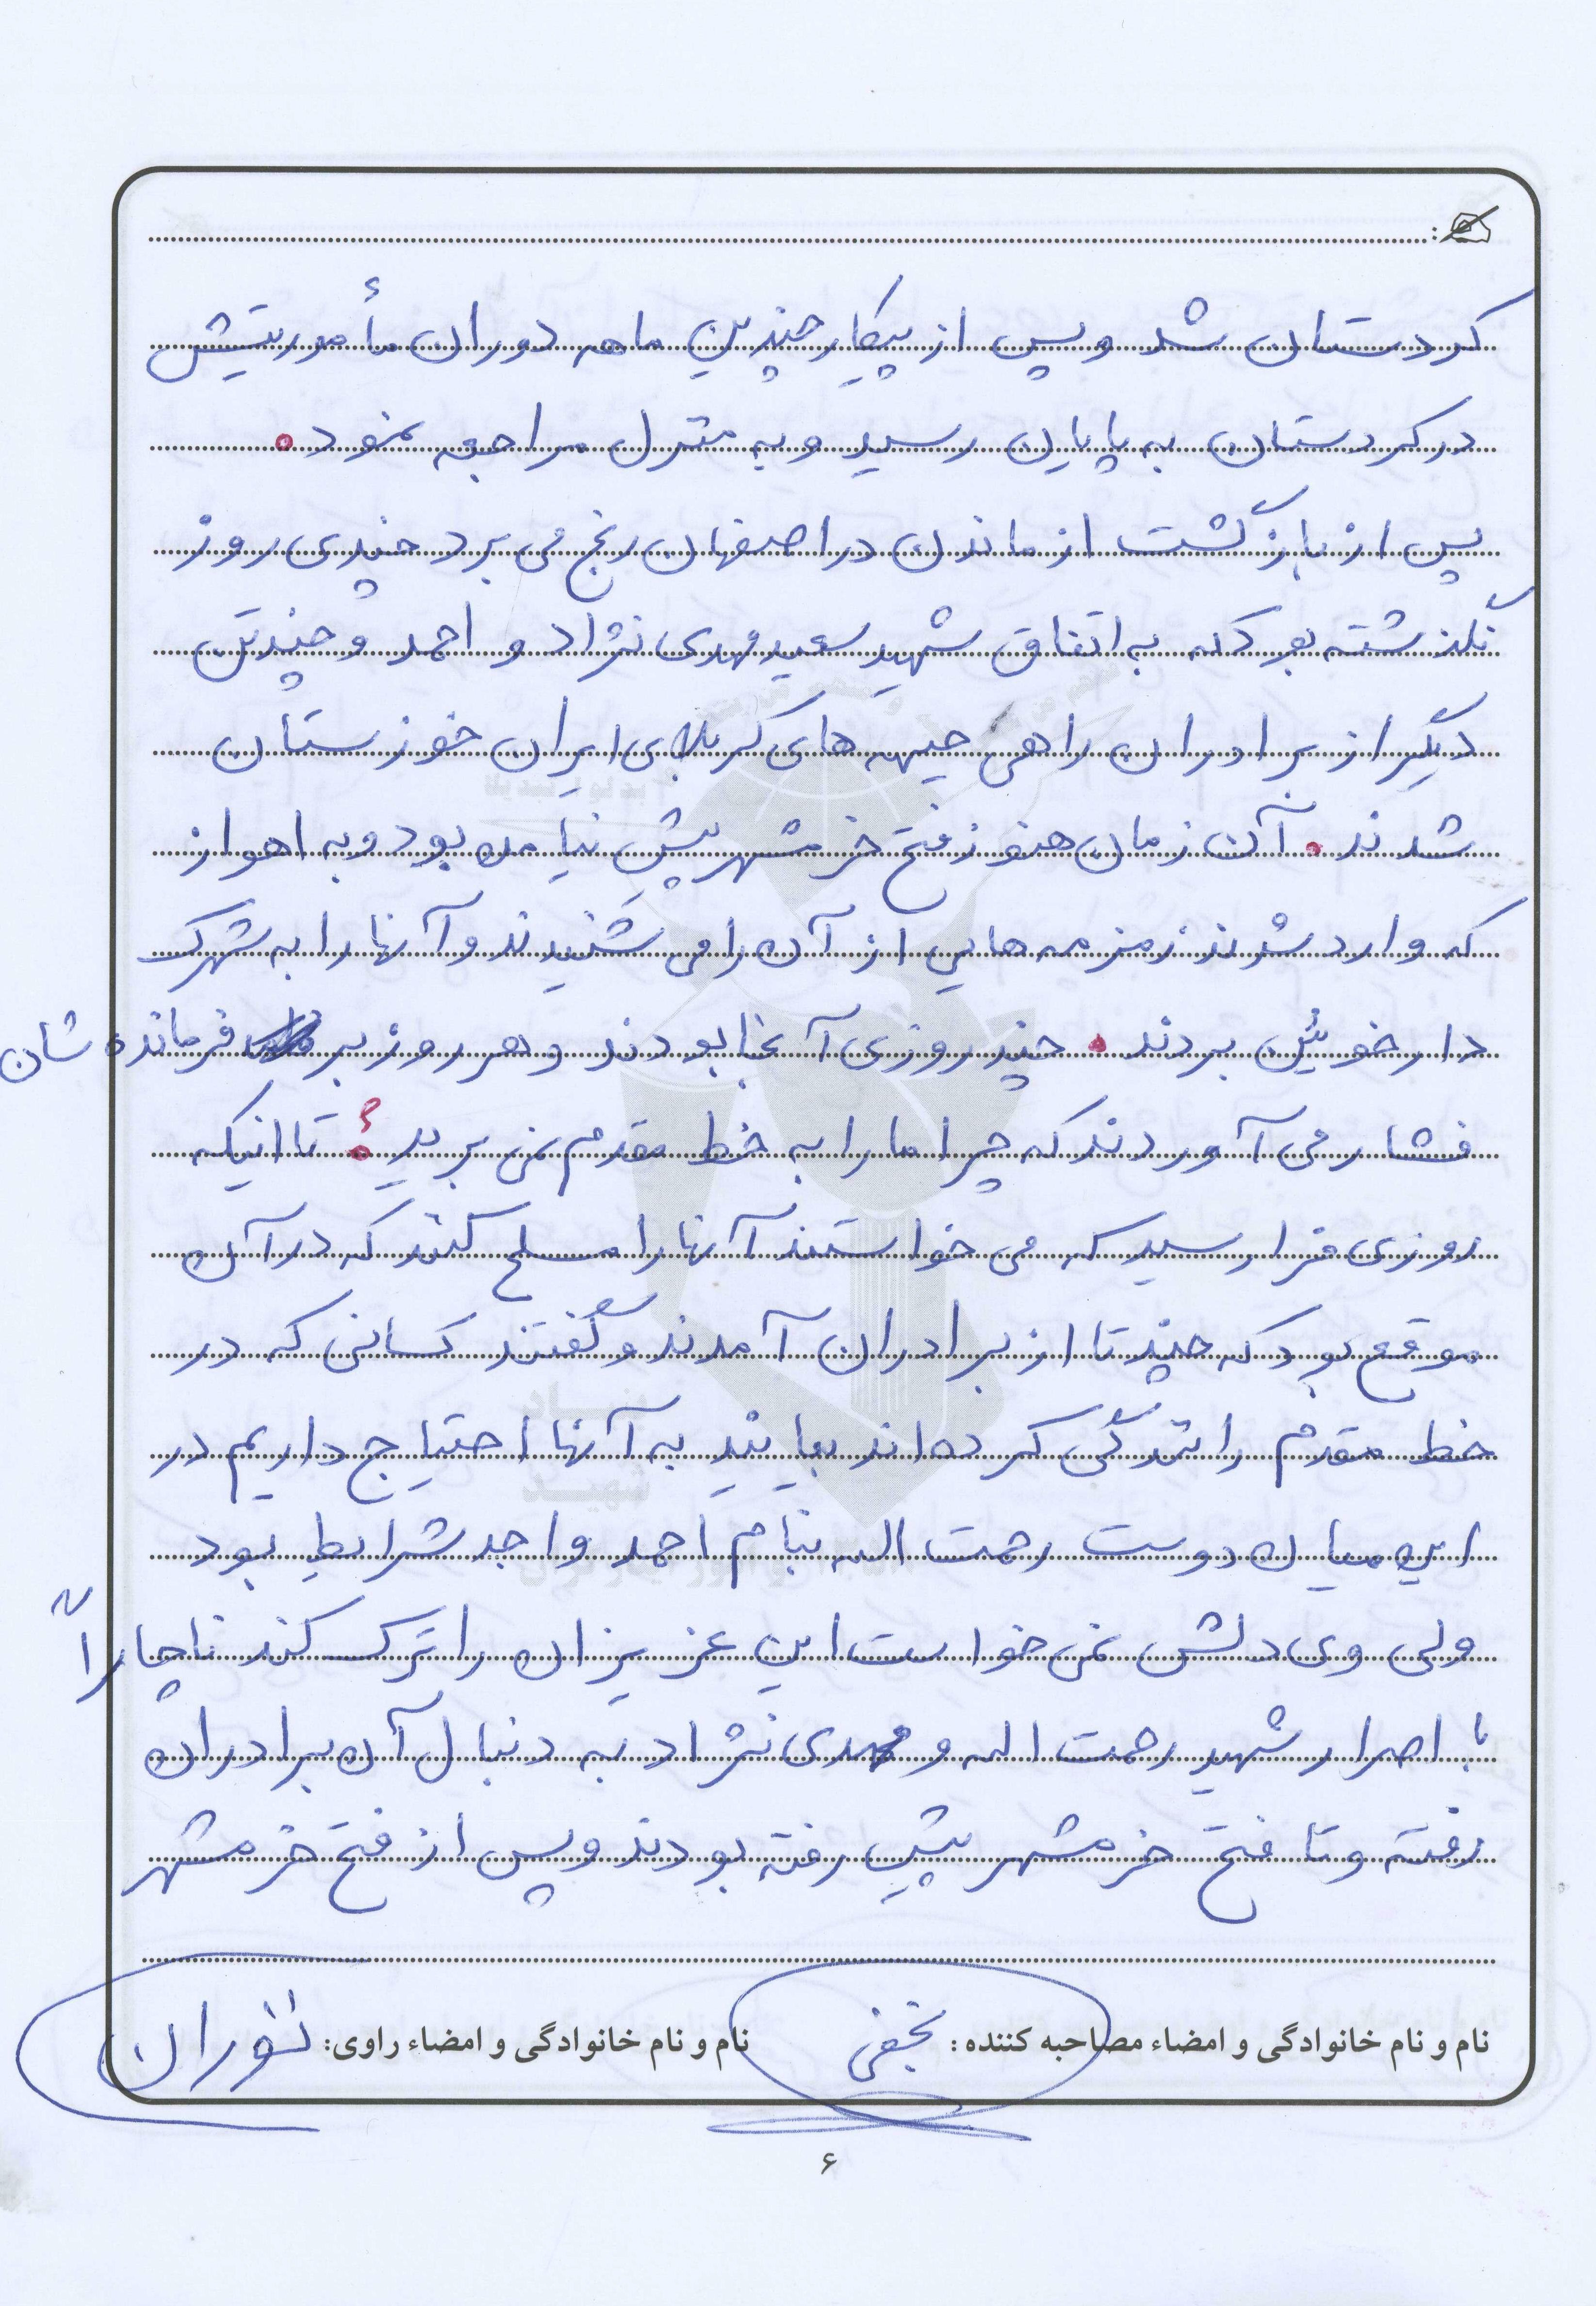 کردستان شد و پس از پیکار چندین ماهه دوران مأموریتش
در کردستان به پایان رسید و به منزل مراجعه نمود.
پس از بازگشت از ماندن در اصفهان رنج می برد چندی روز
نگذشته بود که به اتفاق شهید سعید مهدی نژاد و احمد و چندتن
دیگر از برادران راهی جبهه های کربلای ایران خوزستان
شدند. آن زمان هنوز فتح خرمشهر پیش نیامده بود و به اهواز
که وارد شدند زمزمه هایی از آن را می شنیدند و آنها را به شهرک
دارخوئین بردند. چند روزی آنجا بودند و هر روز بر فرمانده شان
فشار می آوردند که چرا ما را به خط مقدم نمی برید؟ تا اینکه
روزی فرا رسید که می خواستند آنها را مسلح کنند که در آن
موقع بود که چند تا از برادران آمدند و گفتند کسانی که در
خط مقدم رانندگی کرده اند بیایند به آنها احتیاج داریم در
این میان دوست رحمت اله بنام احمد واجد شرایط بود
ولی وی دلش نمی خواست این عزیزان را ترک کند ناچاراً
با اصرار شهید رحمت اله و مهدی نژاد به دنبال آن برادران
رفته و تا فتح خرمشهر پیش رفته بودند و پس از فتح خرمشهر
نام و نام خانوادگی و امضاء مصاحبه کننده: نجفی نام و نام خانوادگی و امضاء راوی:
۶